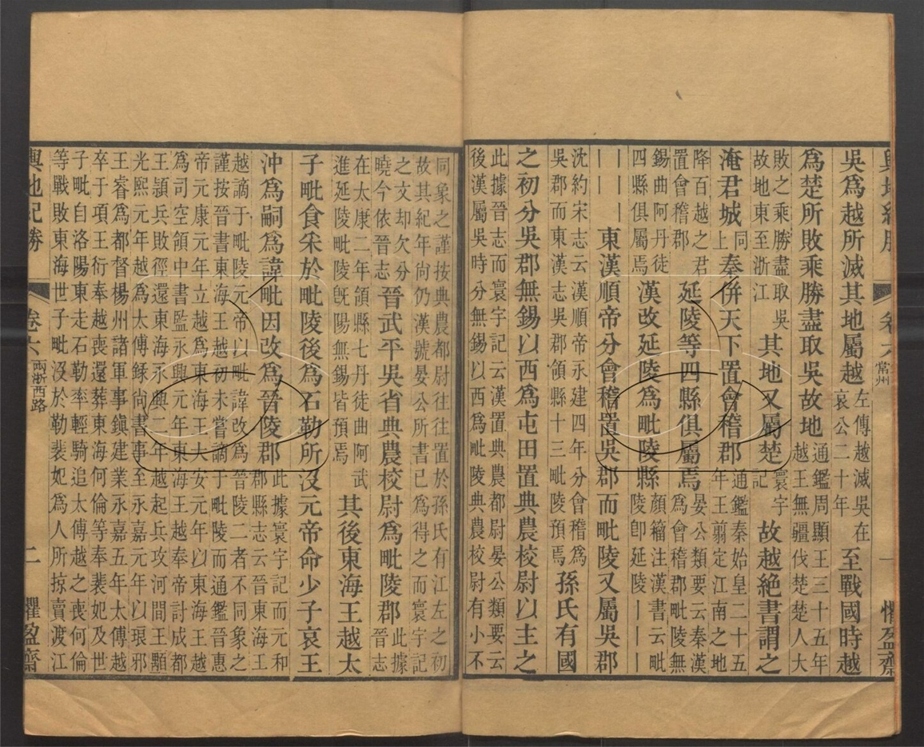 輿地紀勝 卷六 常州 一 懼盈齋
吳爲越所滅其地屬越左傳越滅吳在哀公二十年至戰國時越
爲楚所敗乘勝盡取吳故地通鑑周顯王三十五年越王無疆伐楚楚人大
敗之乘勝盡取吳故地東至浙江其地又屬楚寰宇記故越絕書謂之
淹君城同上奉併天下置會稽郡通鑑秦始皇二十五年王翦定江南之地
降百越之君置會稽郡延陵等四縣俱屬焉晏公類要云秦漢爲會稽郡毗陵無
錫曲阿丹徒四縣俱屬焉漢改延陵爲毗陵縣顏籀注漢書云——毗陵卽延陵
東漢順帝分會稽置吳郡而毗陵又屬吳郡
沈約宋志云漢順帝永建四年分會稽爲吳郡而東漢志吳郡領縣十三毗陵預焉孫氏有國
之初分吳郡無錫以西爲屯田置典農校尉以主之
此據晉志而寰宇記云漢置典農都尉晏公類要云後漢屬吳時分無錫以西爲毗陵典農校尉有小不
同象之謹按典農都尉往往置於孫氏有江左之初故其紀年尚仍漢號晏公所書已爲得之而寰宇記
之文却欠分曉今依晉志晉武平吳省典農校尉爲毗陵郡此據晉志
在太康二年領縣七丹徒曲阿武進延陵毗陵旣陽無錫皆預焉其後東海王越太
子毗食采於毗陵後爲石勒所沒元帝命少子哀王
沖爲嗣爲諱毗因改爲晉陵郡此據寰宇記而元和郡縣志云晉東海王
越謫于毗陵元帝以毗諱改爲晉陵二者不同象之謹按晉書東海王越初未嘗謫于毗陵而通鑑晉惠
帝元康元年立越爲東海王大安元年以東海王越爲司空領中書監永興元年東海王越奉帝討成都
王穎兵敗徑還東海永興二年越起兵攻河間王顒光熙元年越爲太傅錄尚書事至永嘉元年以琅邪
王睿爲都督楊州諸軍事鎭建業永嘉五年太傅越卒于項王衍奉越喪還葬東海何倫等奉裴妃及世
子毗自洛陽東走石勒率輕騎追太傅越之喪何倫等戰敗東海世子毗沒於勒裴妃爲人所掠賣渡江
輿地紀勝 卷六 兩浙西路 二 懼盈齋